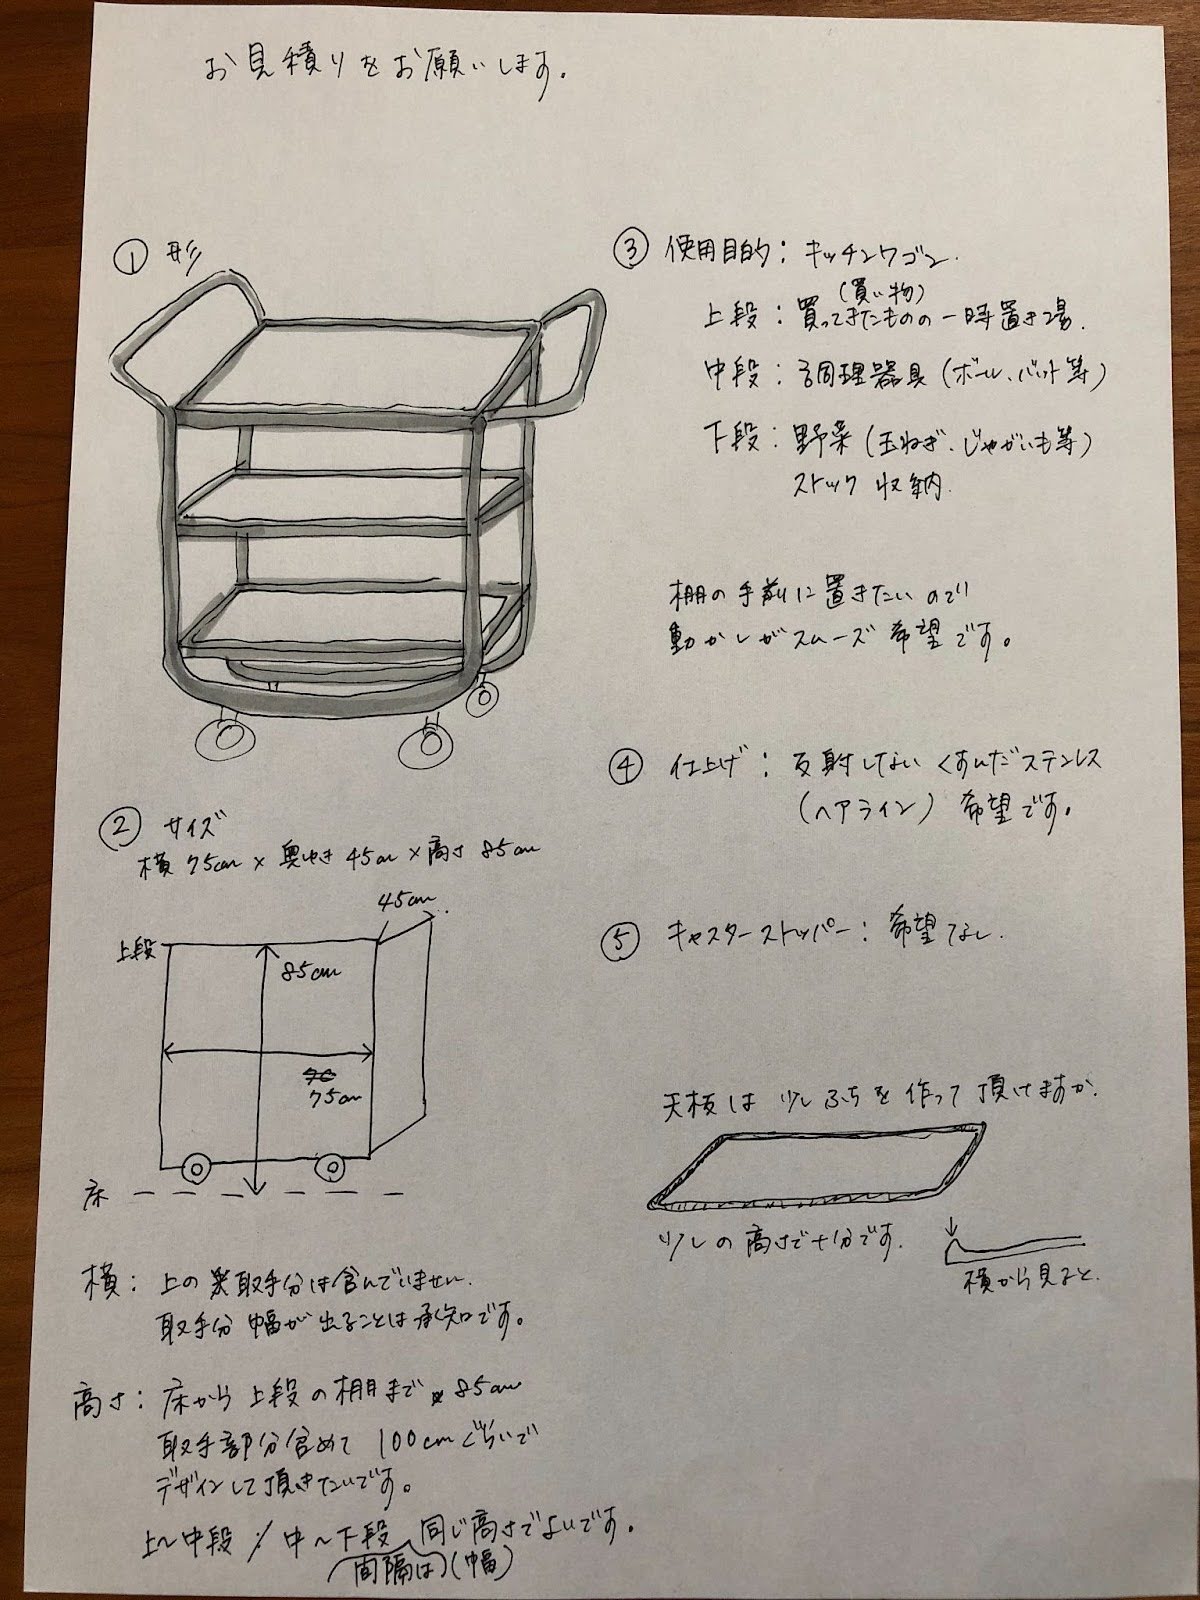 お見積りをお願いします。
① 形
② サイズ
横 75cm × 奥ゆき 45cm × 高さ 85cm
45cm
上段
85cm
75cm
床
横： 上の取手分は含んでいません。
取手分 幅が出ることは承知です。
高さ： 床から上段の棚まで 85cm
取手部分含めて 100cmぐらいで
デザインして頂きたいです。
上〜中段 / 中〜下段 同じ高さでよいです。
間隔は (幅)
③ 使用目的： キッチンワゴン.
(買い物)
上段： 買ってきたものの一時置き場.
中段： 調理器具 (ボール、バット等)
下段： 野菜 (玉ねぎ、じゃがいも等)
ストック 収納.
棚の手前に置きたいので
動かしがスムーズ希望です。
④ 仕上げ： 反射しないくすんだステンレス
(ヘアライン) 希望です。
⑤ キャスターストッパー： 希望なし.
天板は 少しふちを作って頂けますか.
少しの高さで十分です.
横から見ると.